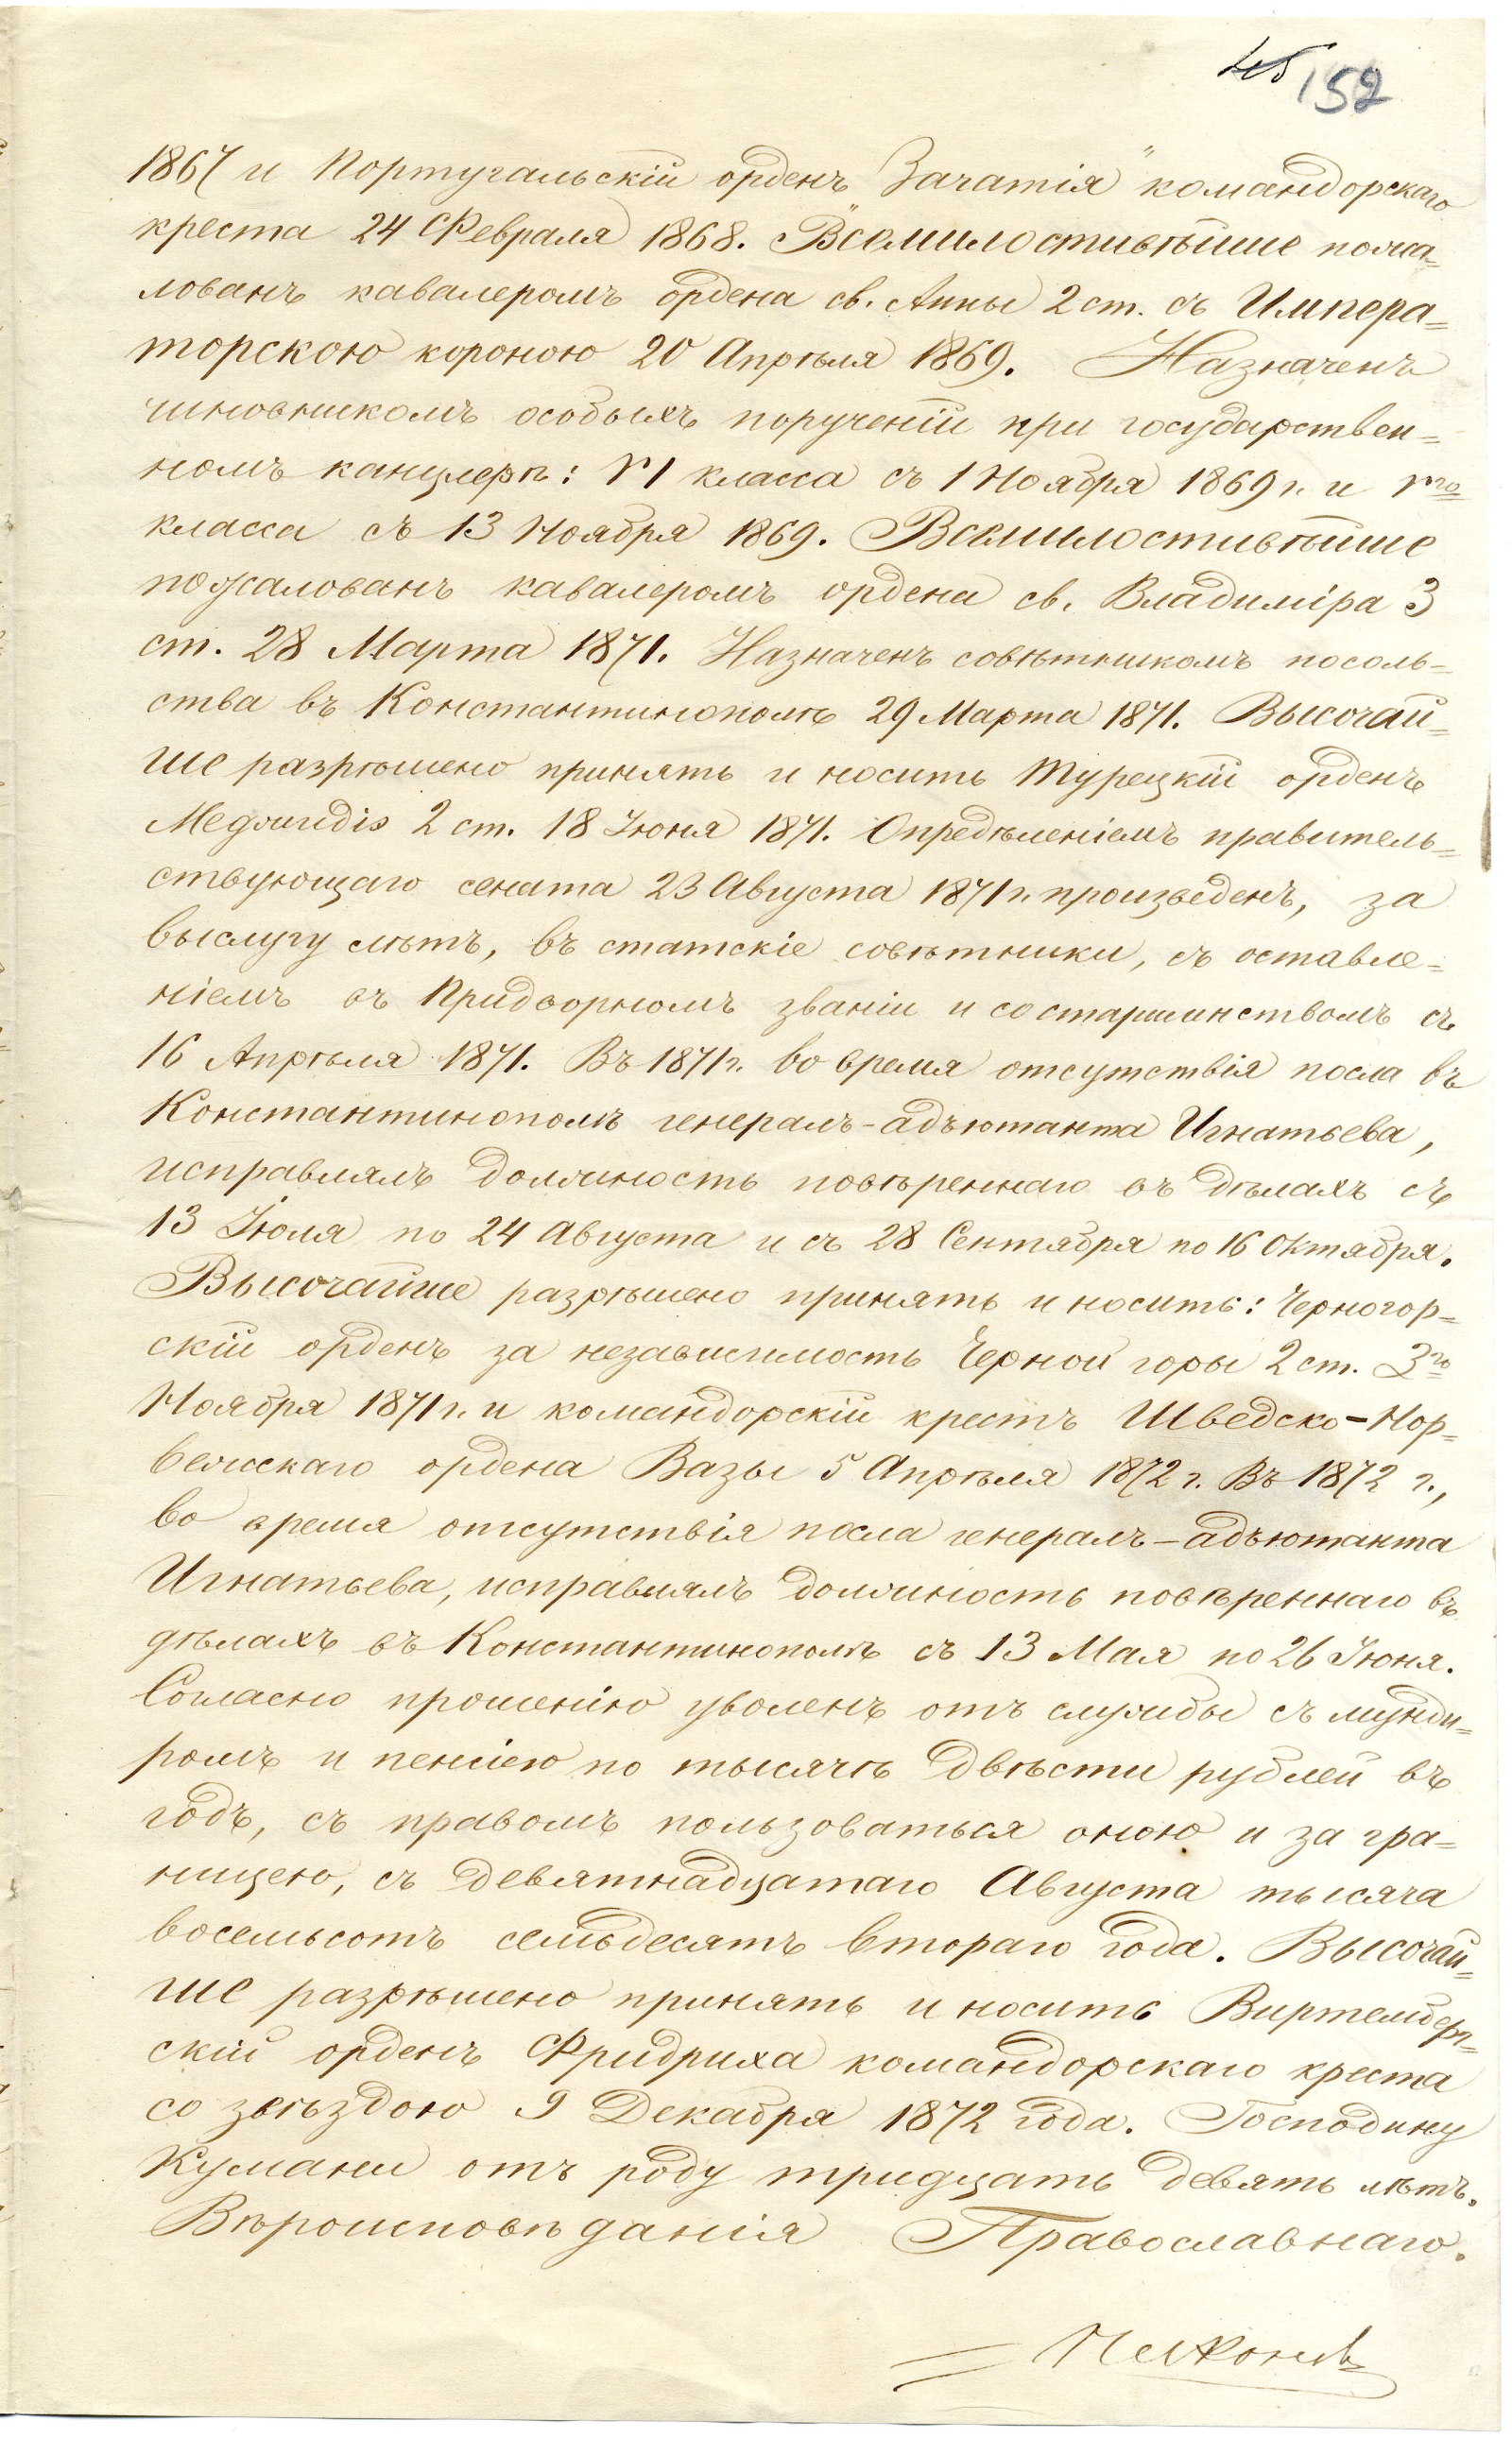 152
1867 и Португальскiй орденъ "Зачатiя" командорскаго
креста 24 Февраля 1868. Всемилостивѣйше пожа=
лованъ кавалеромъ ордена св. Анны 2 ст. съ Импера=
торскою короною 20 Апрѣля 1869. Назначенъ
чиновникомъ особыхъ порученiй при государствен=
номъ канцлерѣ: VI класса съ 1 Ноября 1869 г. и Vго
класса съ 13 Ноября 1869. Всемилостивѣйше
пожалованъ кавалеромъ ордена св. Владимiра 3
ст. 28 Марта 1871. Назначенъ совѣтникомъ посоль=
ства въ Константинополѣ 29 Марта 1871. Высочай=
ше разрѣшено принять и носить Турецкiй орденъ
Medjidis 2 ст. 18 Iюня 1871. Опредѣленiемъ правитель=
ствующаго сената 23 Августа 1871 г. произведенъ, за
выслугу лѣтъ, въ статскiе совѣтники, съ оставле=
нiемъ въ Придворномъ званiи и со старшинствомъ съ
16 Апрѣля 1871. Въ 1871 г. во время отсутствiя посла въ
Константинополѣ генералъ-адъютанта Игнатьева,
исправлялъ должность повѣреннаго въ дѣлахъ съ
13 Iюля по 24 Августа и съ 28 Сентября по 16 Октября.
Высочайше разрѣшено принять и носить: Черногор=
скiй орденъ за независимость Черной горы 2 ст. 3го
Ноября 1871 г. и командорскiй крестъ Шведско-Нор=
вежскаго ордена Вазы 5 Апрѣля 1872 г. Въ 1872 г.,
во время отсутствiя посла генералъ-адъютанта
Игнатьева, исправлялъ должность повѣреннаго въ
дѣлахъ въ Константинополѣ съ 13 Мая по 26 Iюня.
Согласно прошенiю уволенъ отъ службы съ мунди=
ромъ и пенсiею по тысячѣ двѣсти рублей въ
годъ, съ правомъ пользоваться оною и за гра=
ницею, съ девятнадцатаго Августа тысяча
восемьсотъ семьдесятъ втораго года. Высочай=
ше разрѣшено принять и носить Виртемберг=
скiй орденъ Фридриха командорскаго креста
со звѣздою 9 Декабря 1872 года. Господину
Кумани отъ роду тридцать девять лѣтъ.
Вѣроисповѣданiя Православнаго.